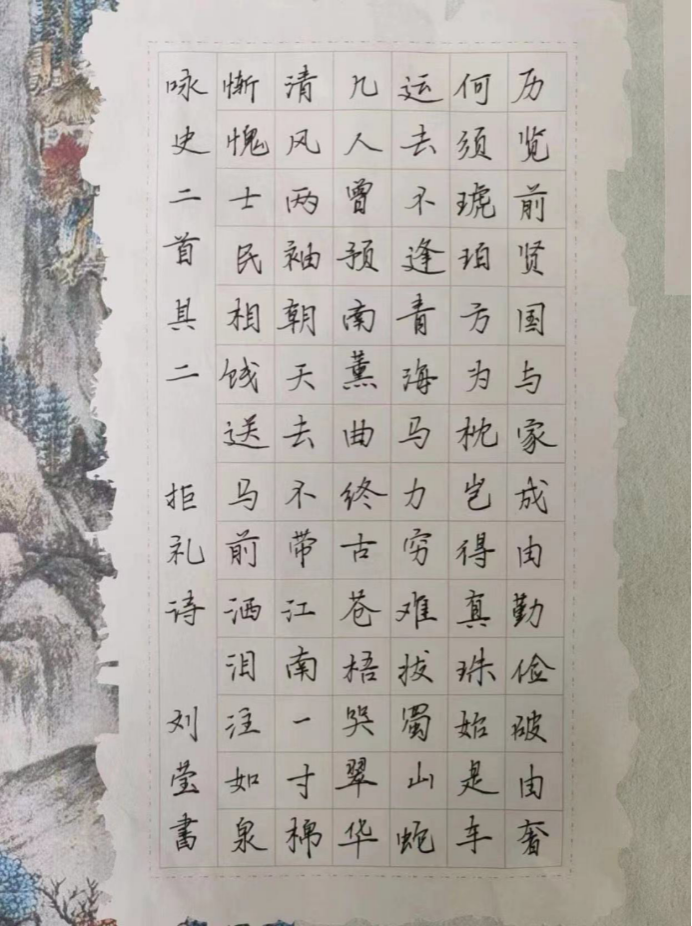 历览前贤国与家成由勤俭破由奢
何须琥珀方为枕岂得真珠始是车
运去不逢青海马力穷难拔蜀山蛇
几人曾预南薰曲终古苍梧哭翠华
清风两袖朝天去不带江南一寸棉
惭愧士民相饯送马前洒泪注如泉
咏史二首其二 拒礼诗 刘莹書